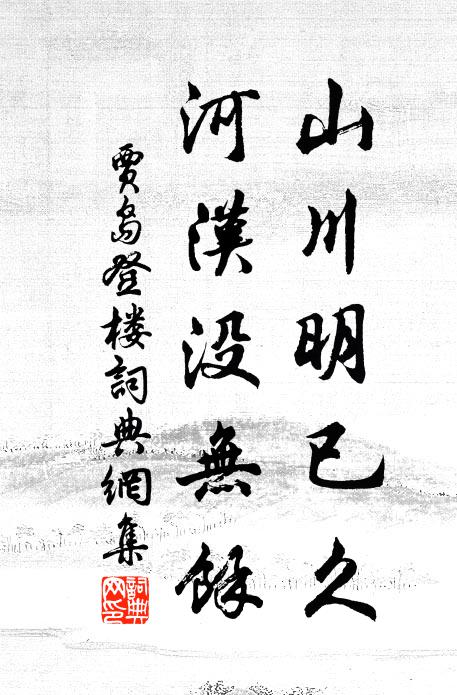 山川明已久
河漢没無餘
賈島登楼詞典網集
詞典网印